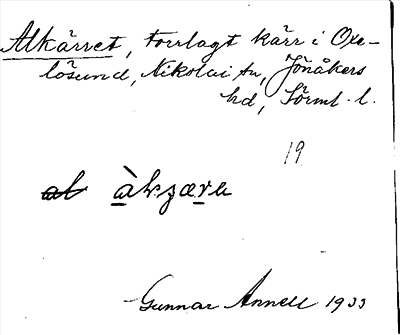 Alkärret, torrlagt kärr i Oxe-
lösund, Nikolai sn, Jönåkers
hd, Sörml. l.
19
al àkʒæra
Gunnar Annell 1933